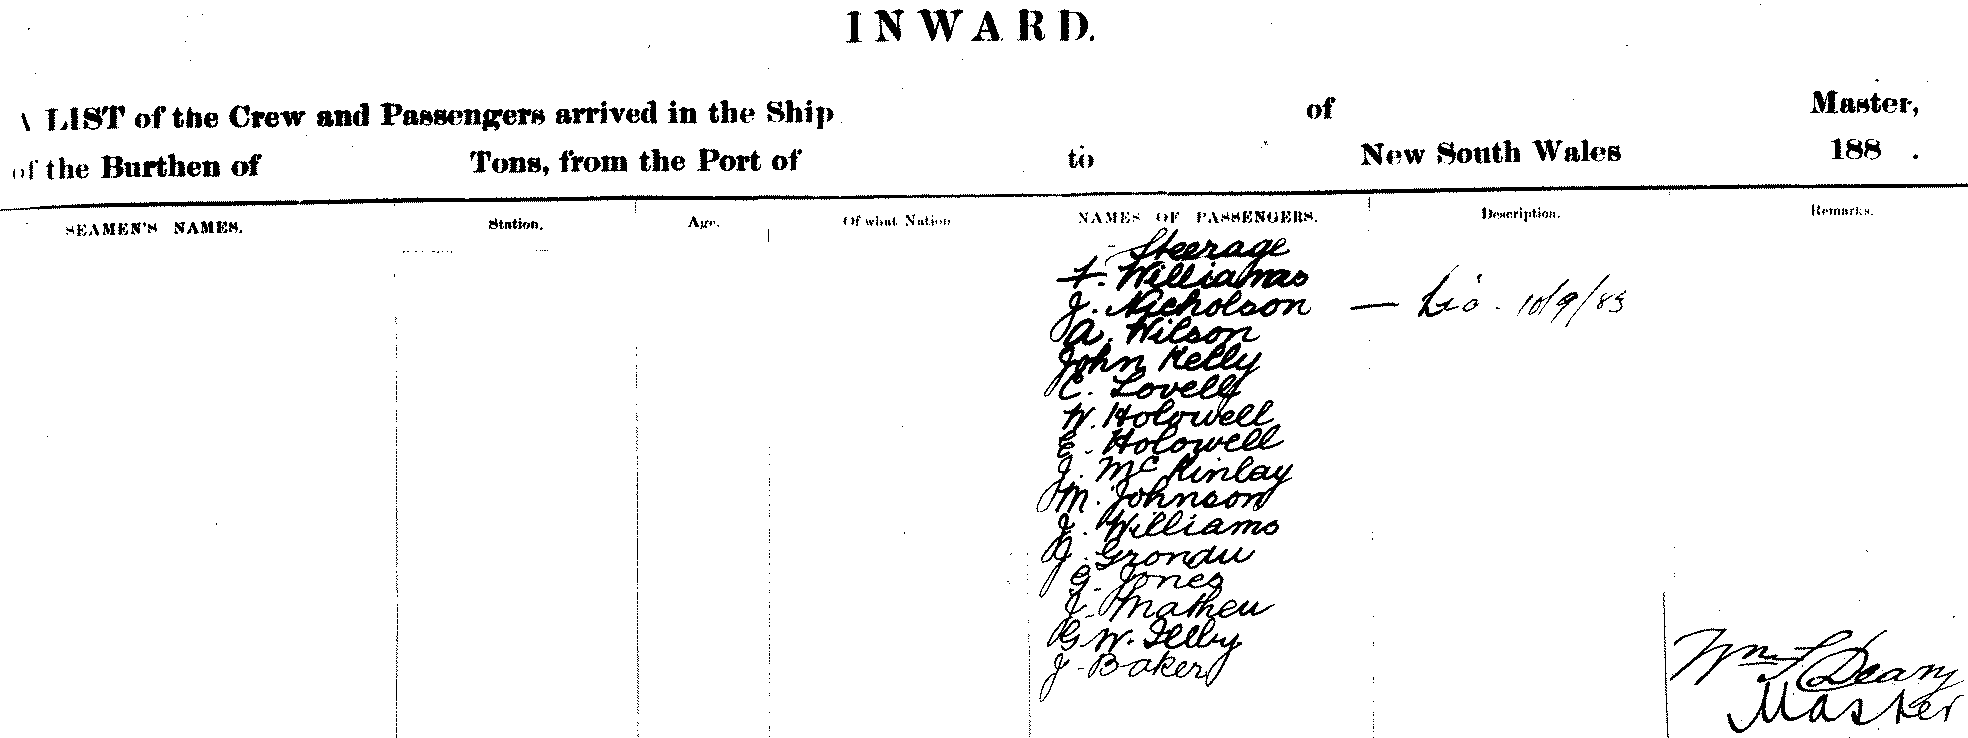 INWARD.
A LIST of the Crew and Passengers arrived in the Ship of Master,
of the Burthen of Tons, from the Port of to New South Wales 188 .
SEAMEN'S NAMES. Station. Age. Of what Nation NAMES OF PASSENGERS. Description. Remarks.
Steerage
F. Williams
J. Nicholson — 10/9/83
A. Wilson
John Kelly
C. Lovell
W. Holowell
E. Holowell
J. McKinlay
M. Johnson
J. Williams
J. Grondu
G. Jones
J. Matheu
G. W.
J. Baker
Wm Deary
Master